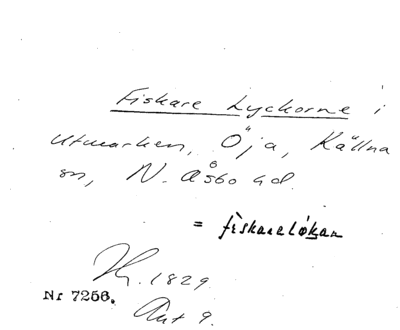 Fiskare Lyckorne i
utmarken, Öja, Källna
sn, N. Åsbo hd.
= fiskarelökan
1829
Nr 7256.
Akt 9.